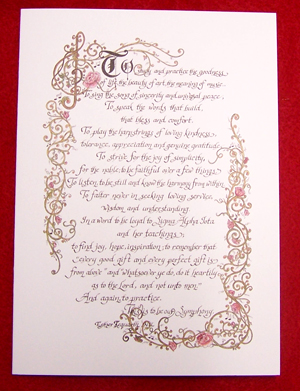 To study and practice the goodness
of life, the beauty of art, the meaning of music.
To sing the song of sincerity and universal peace.
To speak the words that build,
that bless and comfort.
To play the harpstrings of loving kindness,
tolerance, appreciation and genuine gratitude.
To strive for the joy of simplicity,
for the noble; to be faithful over a few things.
To listen; to be still and know the harmony from within.
To falter never in seeking loving service,
Wisdom and understanding.
In a word to be loyal to Sigma Alpha Iota
and her teachings;
to find joy, hope, inspiration; to remember that
"every good gift and every perfect gift is
from above" and "whatsoever ye do, do it heartily
as to the Lord, and not unto men."
And again to practice.
This is to be our Symphony.